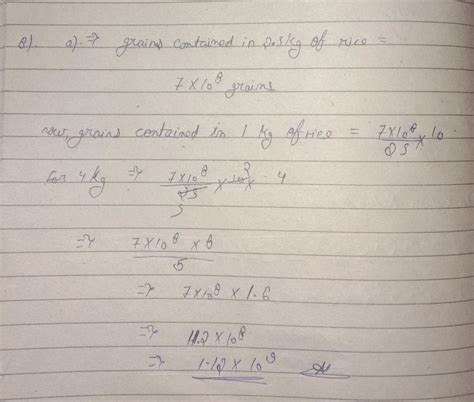 8). a). ⇒ grains contained in 2.5kg of rice =
7×10⁸ grains
now, grains contained in 1 kg of rice = 7×10⁸/25 × 10
For 4 kg ⇒ 7×10⁸/25 × 10 × 4
2
5
⇒ 7×10⁸ × 8/5
⇒ 7×10⁸ × 1.6
⇒ 11.2 × 10⁸
⇒ 1.12 × 10⁹